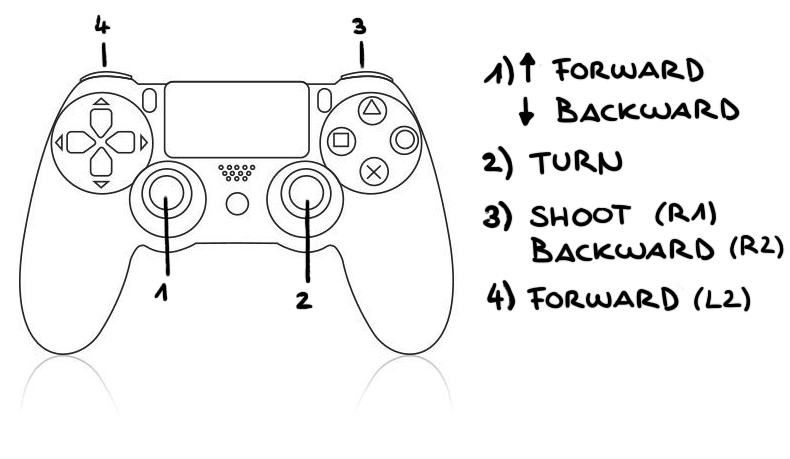 4
3
1) ↑ FORWARD
↓ BACKWARD
2) TURN
3) SHOOT (R1)
BACKWARD (R2)
4) FORWARD (L2)
1
2